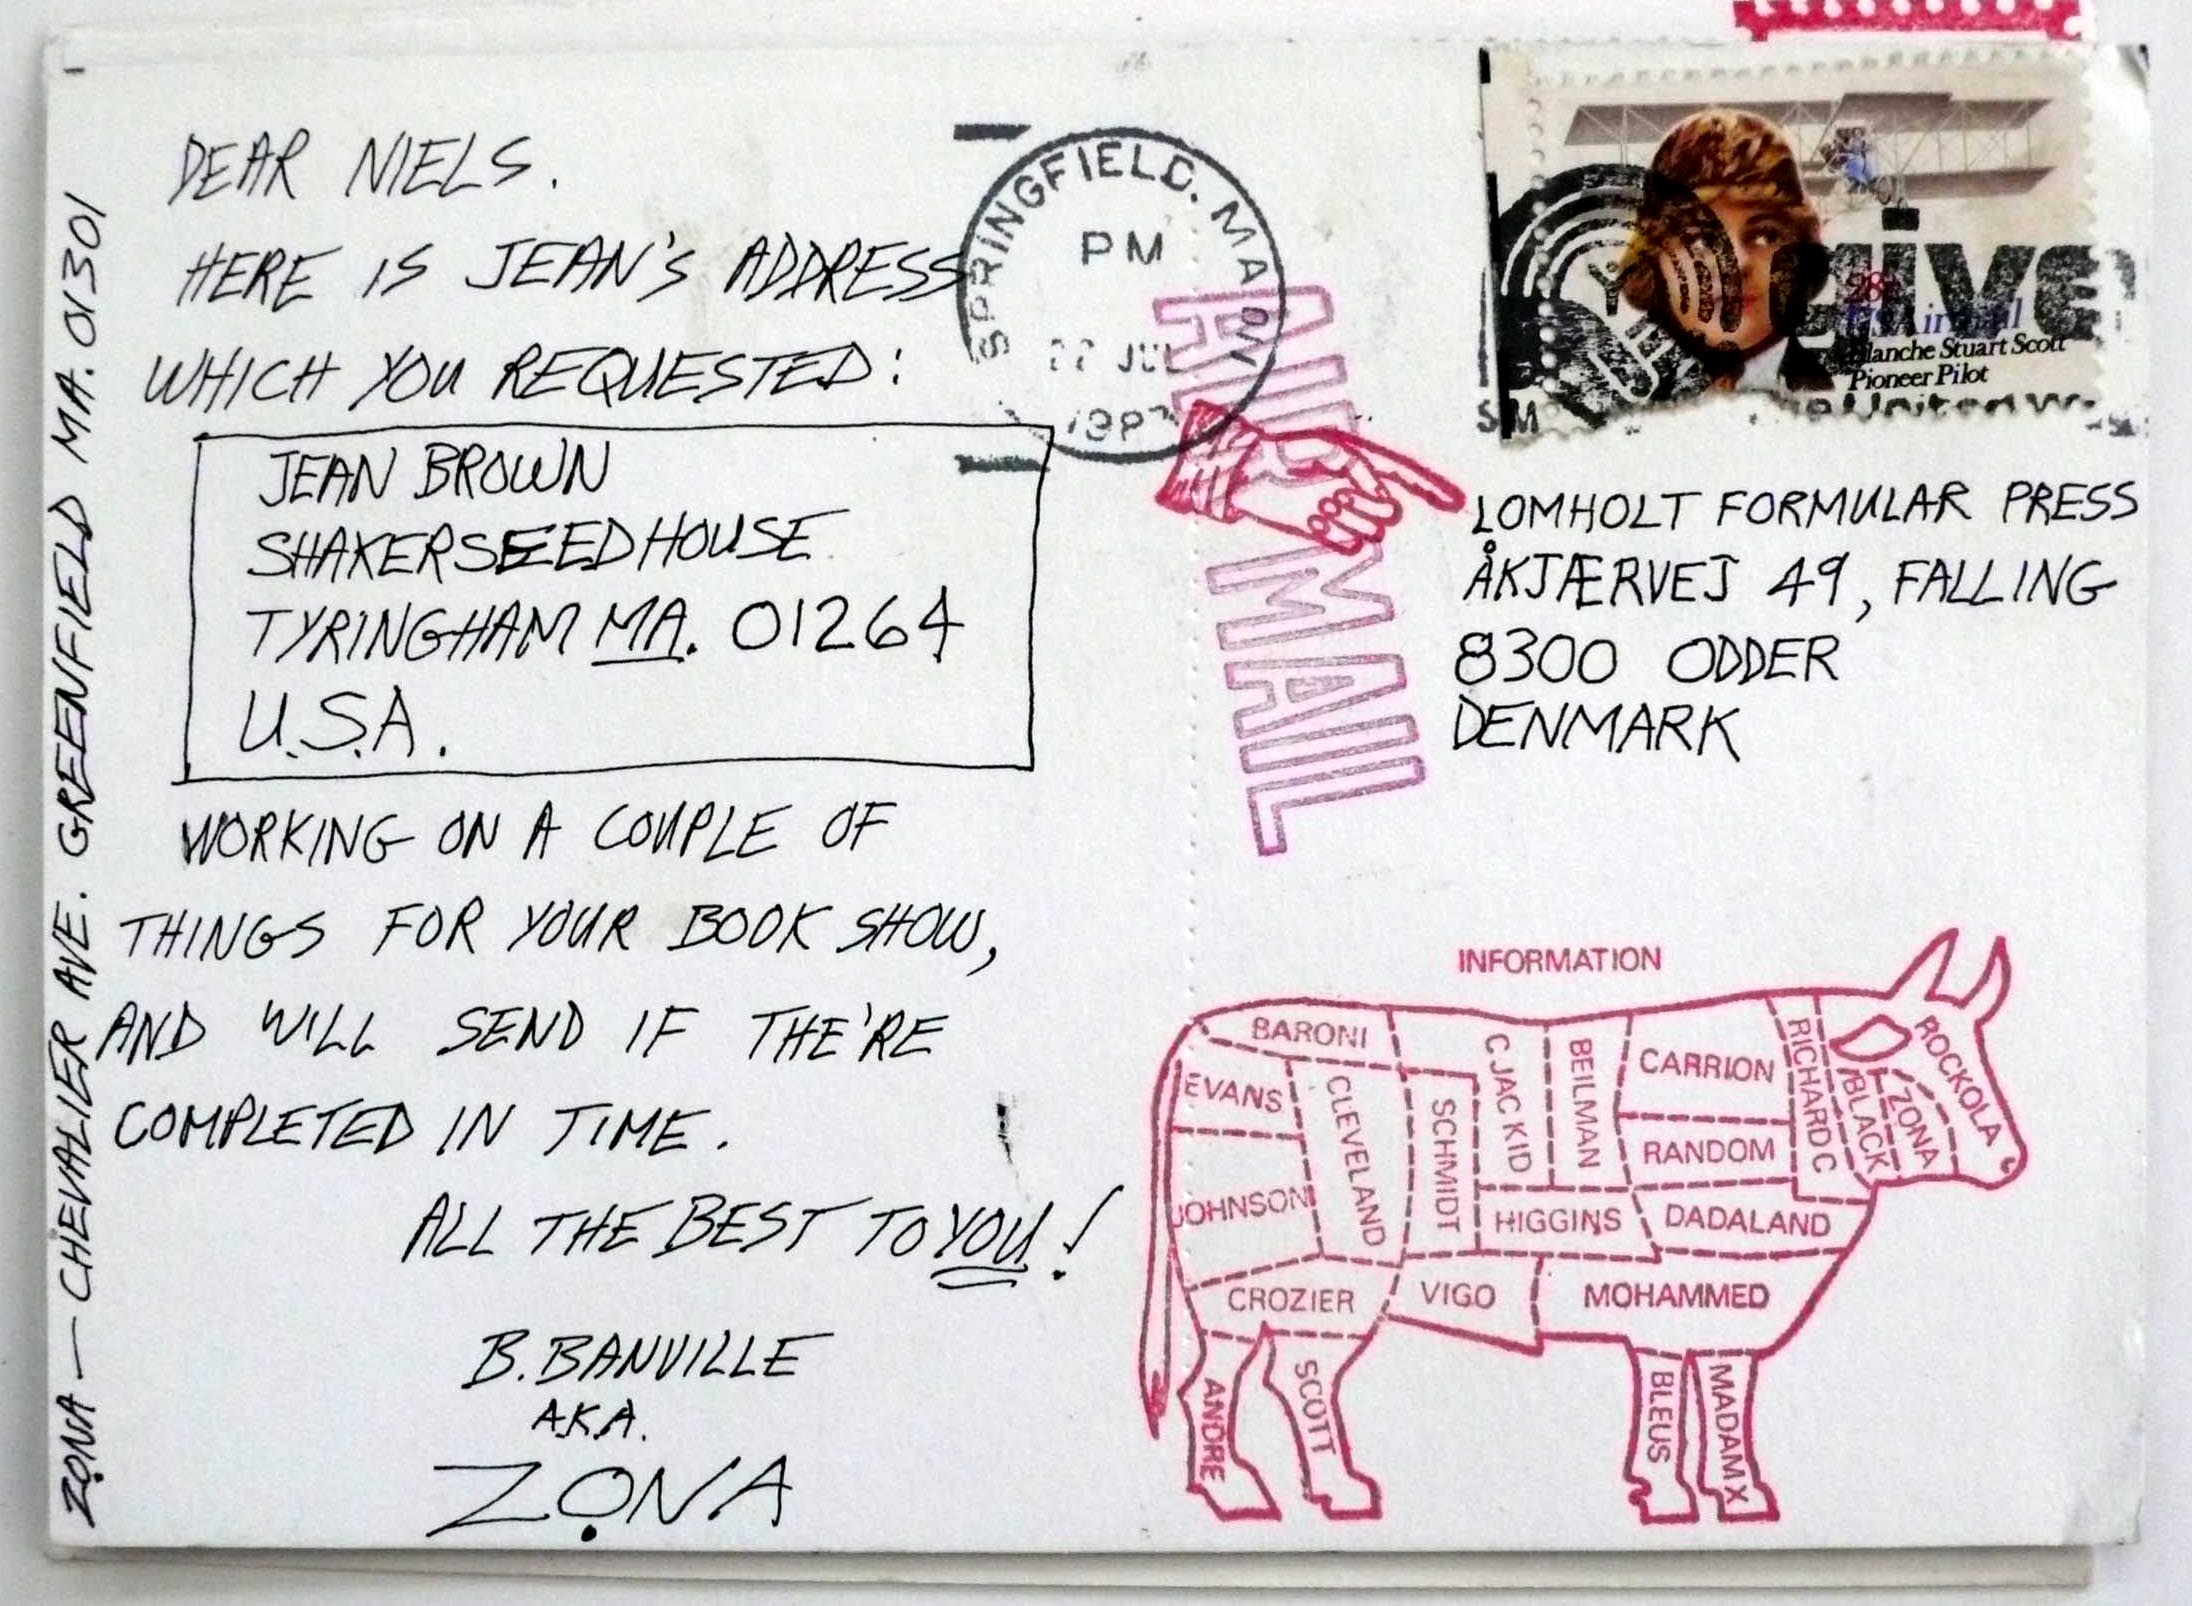 DEAR NIELS.
HERE IS JEAN'S ADDRESS
WHICH YOU REQUESTED:
JEAN BROWN
SHAKERSEEDHOUSE
TYRINGHAM MA. 01264
U.S.A.
WORKING ON A COUPLE OF
THINGS FOR YOUR BOOK SHOW,
AND WILL SEND IF THE'RE
COMPLETED IN TIME.
ALL THE BEST TO YOU!
B. BANVILLE
AKA.
ZONA
ZONA — CHEVALIER AVE. GREENFIELD MA. 01301
SPRINGFIELD. MA
PM
JUL
AIR MAIL
Give
28¢
USAirmail
Blanche Stuart Scott
Pioneer Pilot
LOMHOLT FORMULAR PRESS
ÅKJÆRVEJ 49, FALLING
8300 ODDER
DENMARK
INFORMATION
BARONI
EVANS
CLEVELAND
JOHNSON
SCHMIDT
C JAC KID
BEILMAN
CARRION
RANDOM
RICHARD C
BLACK
ZONA
ROCKOLA
HIGGINS
DADALAND
CROZIER
VIGO
MOHAMMED
ANDRE
SCOTT
BLEUS
MADAM X